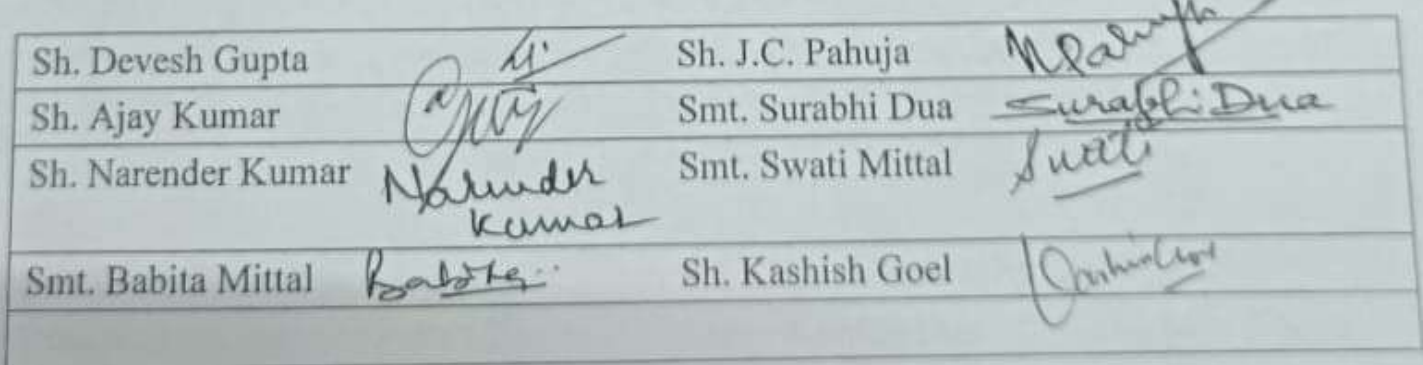 Sh. Devesh Gupta Sh. J.C. Pahuja
Sh. Ajay Kumar Smt. Surabhi Dua Surabhi Dua
Sh. Narender Kumar Narender Smt. Swati Mittal Swati
Kumar
Smt. Babita Mittal Babita Sh. Kashish Goel